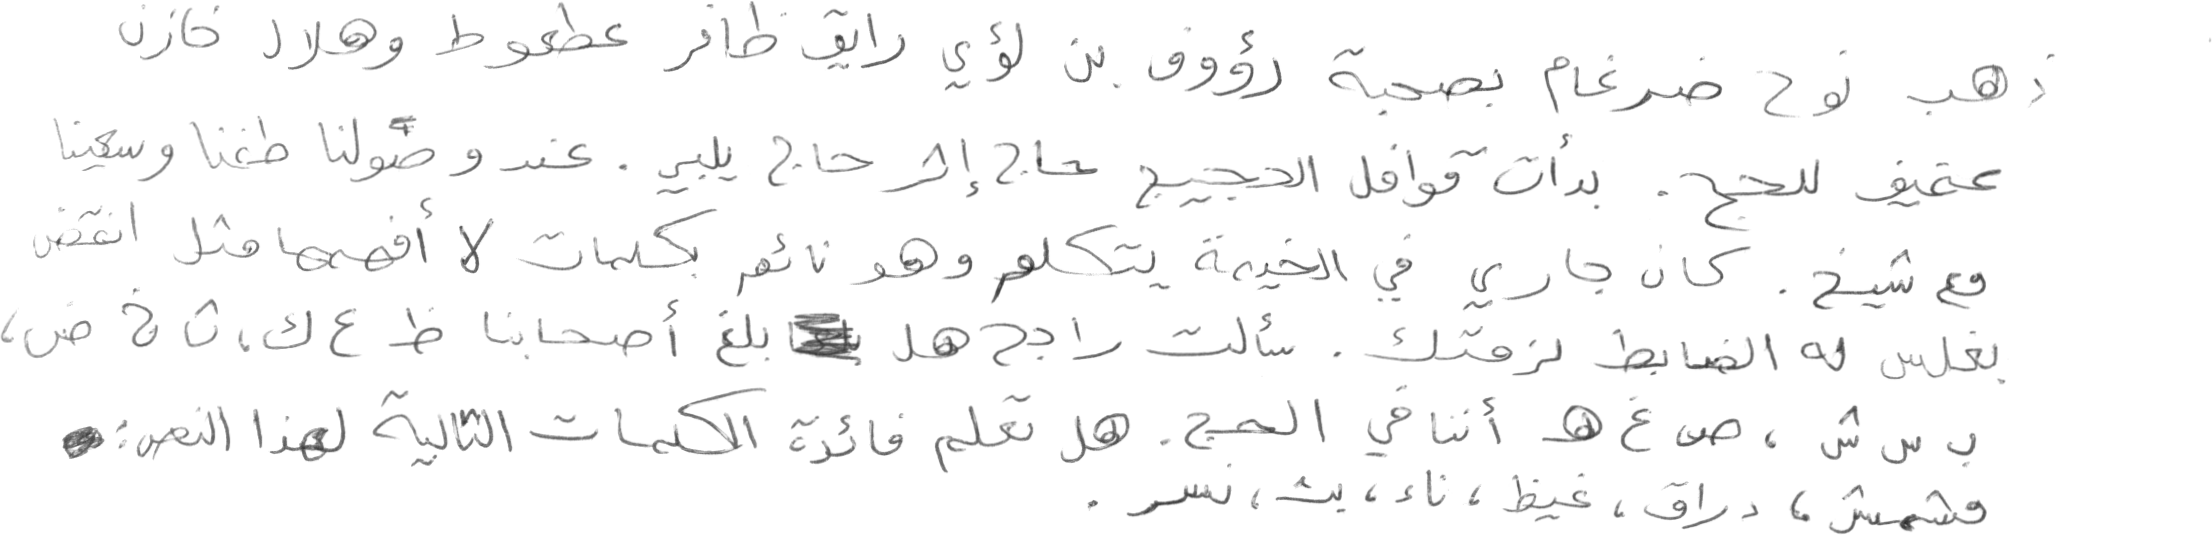 ذهب نوح ضرغام بصحبة رؤوف بن لؤي رايق ظافر عطعوط وهلال خازن
عتميق للحج. بدأت قوافل الحجيج حاج إثر حاج يلبي. عند وصولنا طفنا وسعينا
مع شيخ. كان جاري في الخيمة يتكلم وهو نائم بكلمات لا أفهمها مثل انقض
بغلس له الضابط لزمتك. سألت راجح هل بلغ أصحابنا ظ ع ك، ث خ ض،
ب س ش، ص غ هـ أننا في الحج. هل تعلم فائدة الكلمات التالية لهذا النص:
مشمش، دراق، غيظ، ناء، بث، نسر.